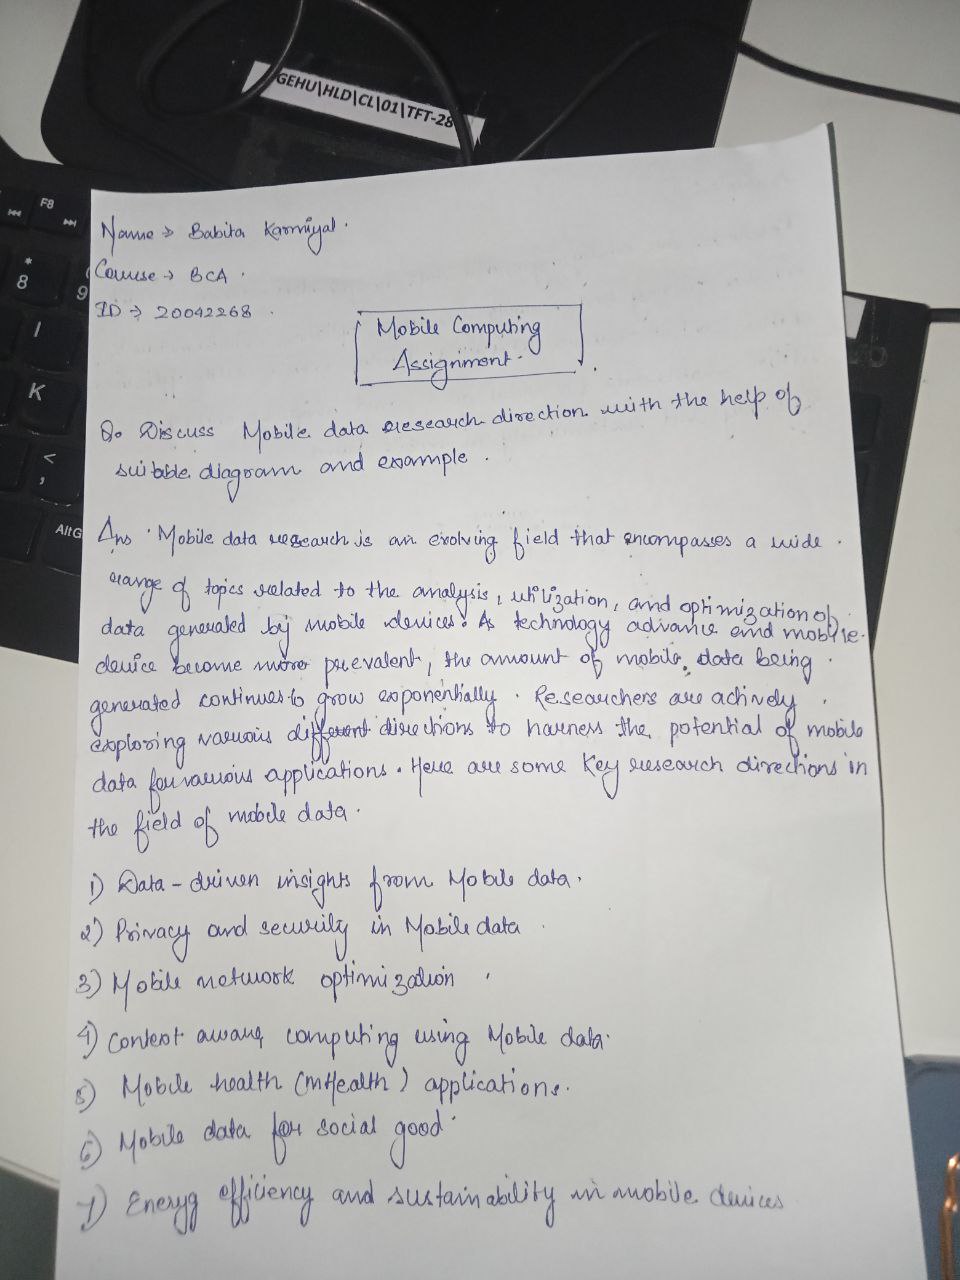 GEHU\HLD\CL\01\TFT-28
F8
*
8
9
/
K
<
,
AltG
Name → Babita Karmiyal.
Course → BCA.
ID → 20042268.
Mobile Computing
Assignment.
Q. Discuss Mobile data research direction with the help of
suitable diagram and example.
Ans. Mobile data research is an evolving field that encompasses a wide
range of topics related to the analysis, utilization, and optimization of
data generated by mobile devices. As technology advance and mobile
device become more prevalent, the amount of mobile data being
generated continues to grow exponentially. Researchers are actively
exploring various different directions to harness the potential of mobile
data for various applications. Here are some key research directions in
the field of mobile data.
1) Data-driven insights from Mobile data.
2) Privacy and security in Mobile data
3) Mobile network optimization
4) Context aware computing using Mobile data.
5) Mobile health (mHealth) applications.
6) Mobile data for social good.
7) Energy efficiency and sustainability in mobile devices